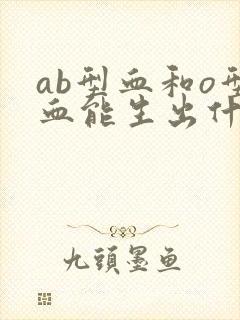 ab型血和o型
血能生出什
九頭墨魚